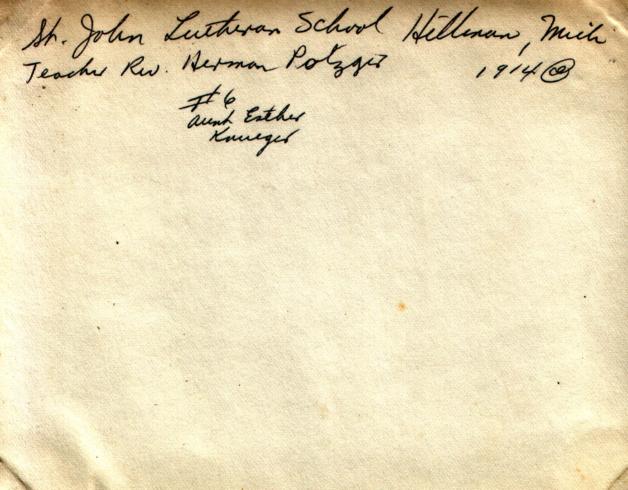 St. John Lutheran School Hillman, Mich
Teacher Rev. Herman Potzger 1914 @
#6
Aunt Esther
Krueger